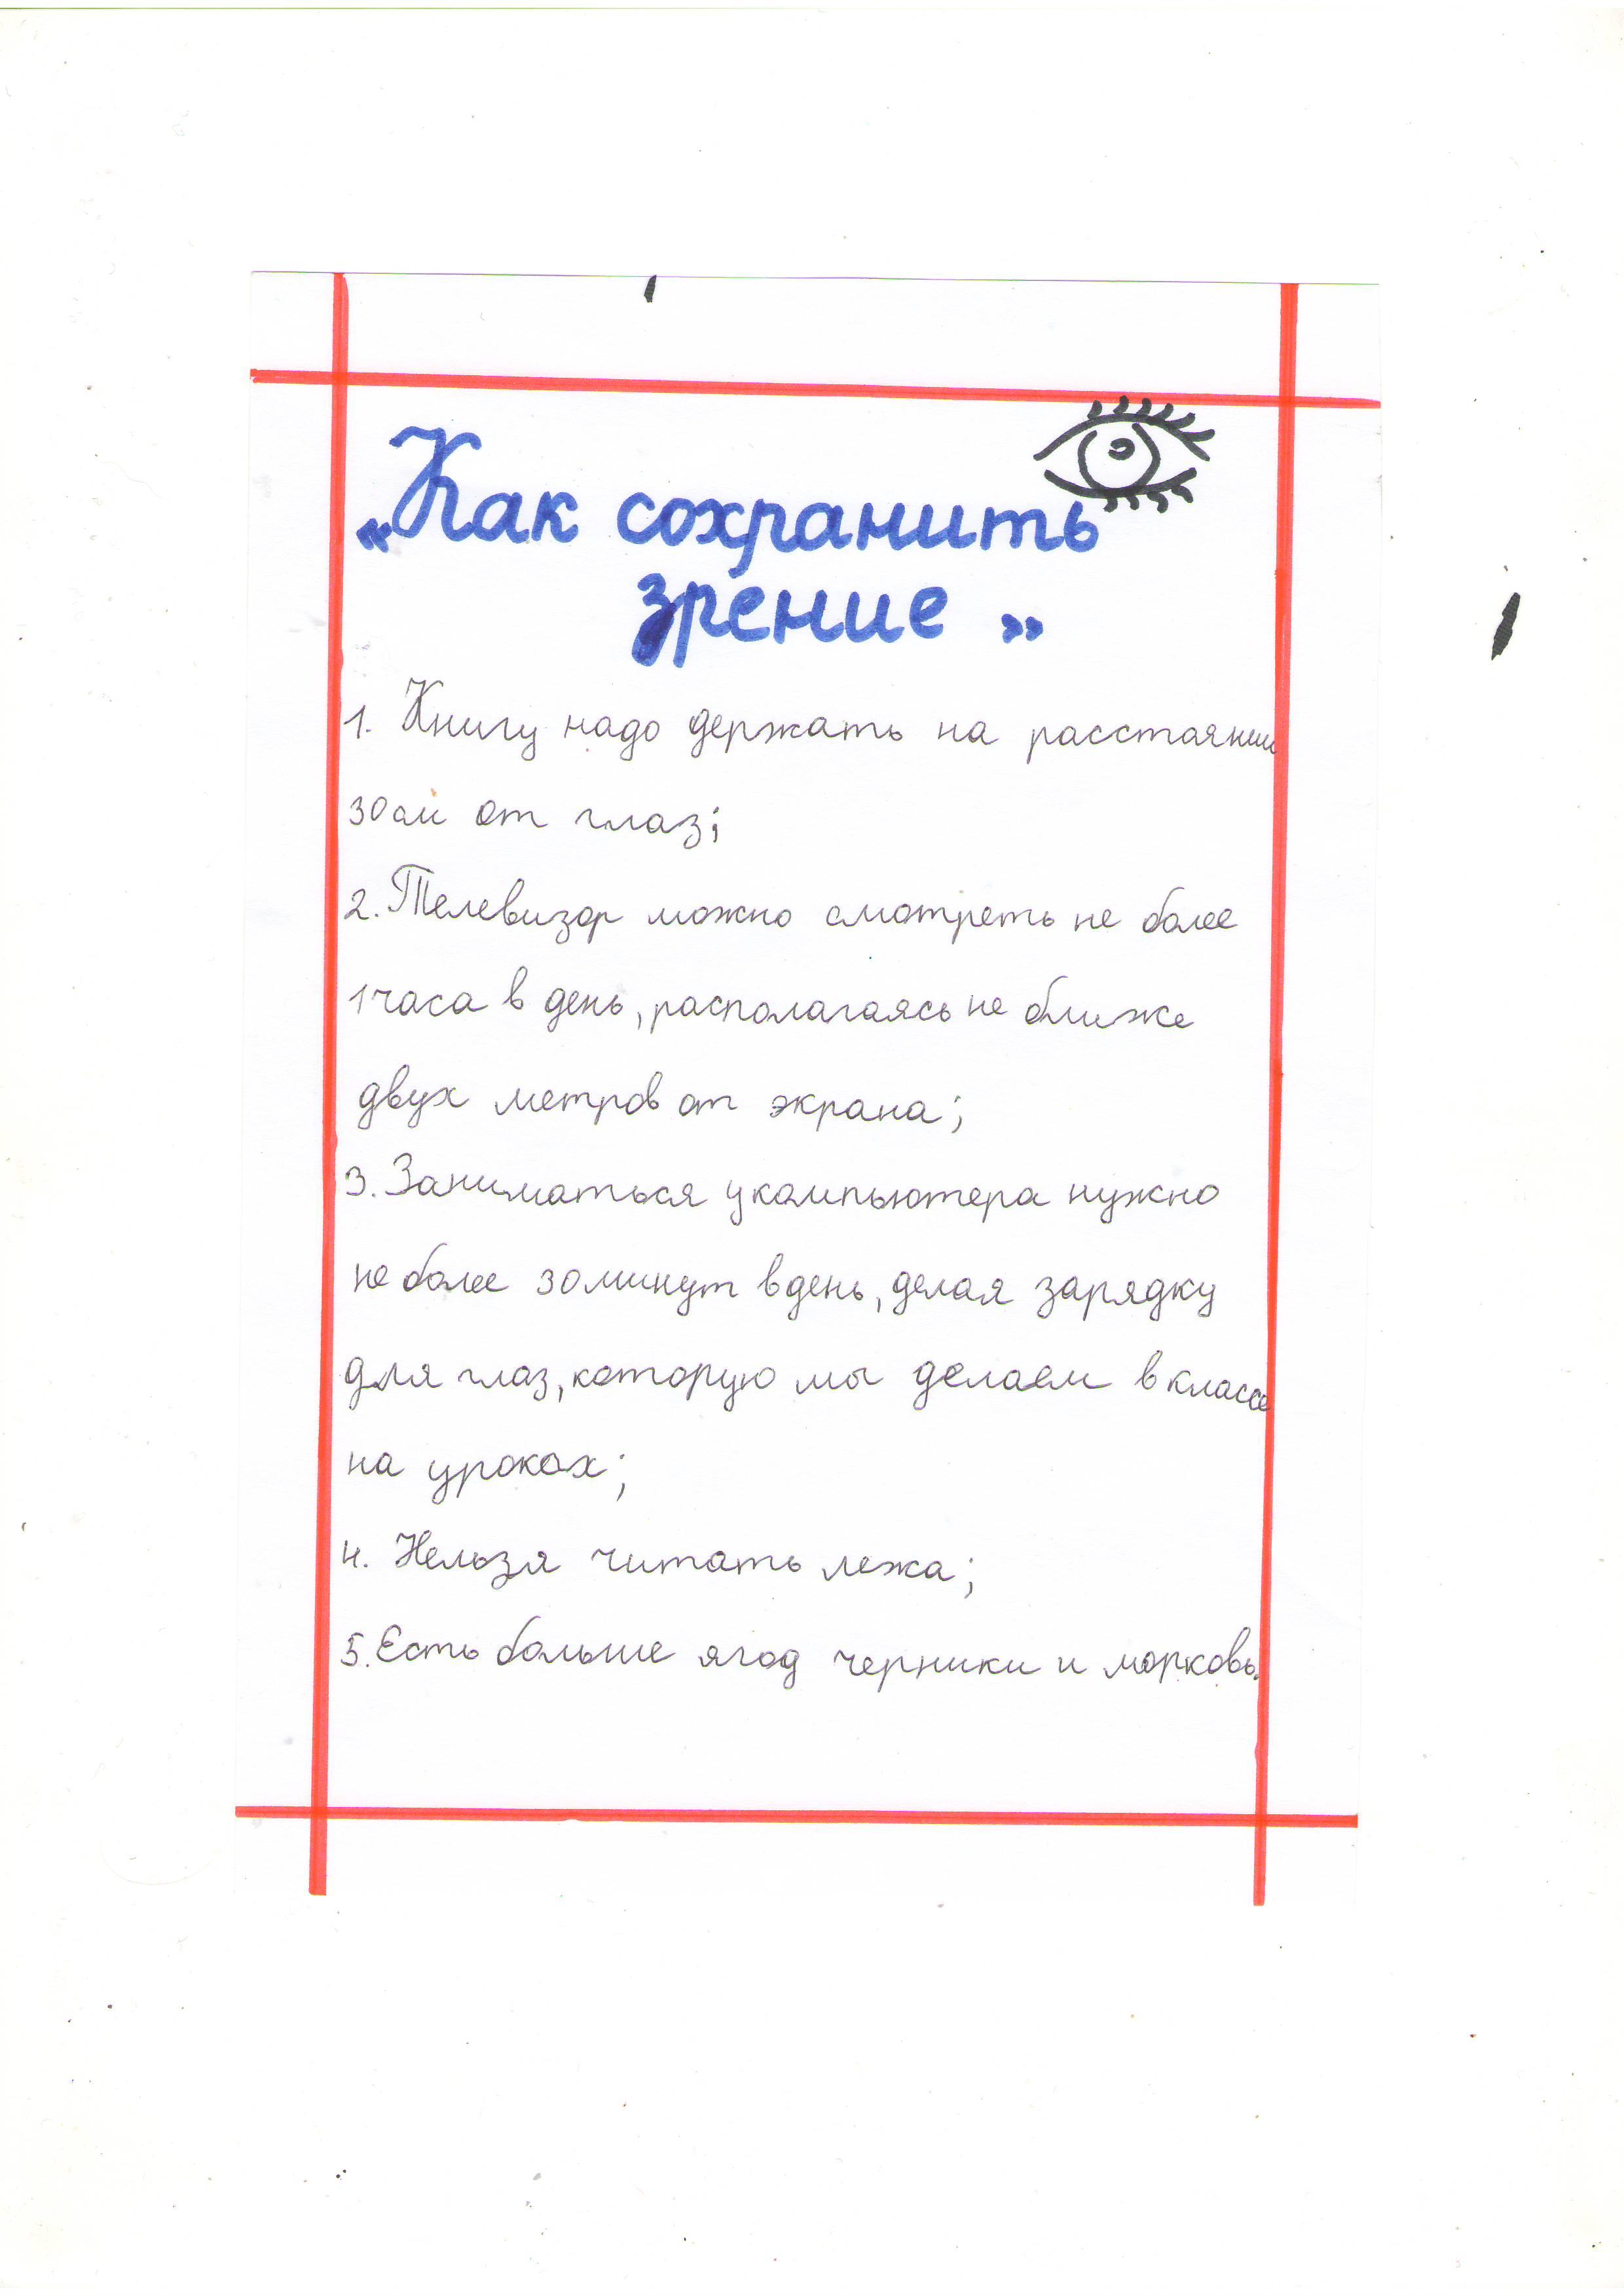 „Как сохранить
зрение »
1. Книгу надо держать на расстаянии
30см от глаз;
2. Телевизор можно смотреть не более
1 часа в день, располагаясь не ближе
двух метров от экрана;
3. Заниматься у компьютера нужно
не более 30 минут в день, делая зарядку
для глаз, которую мы делаем в классе
на уроках;
4. Нельзя читать лежа;
5. Есть больше ягод черники и морковь.